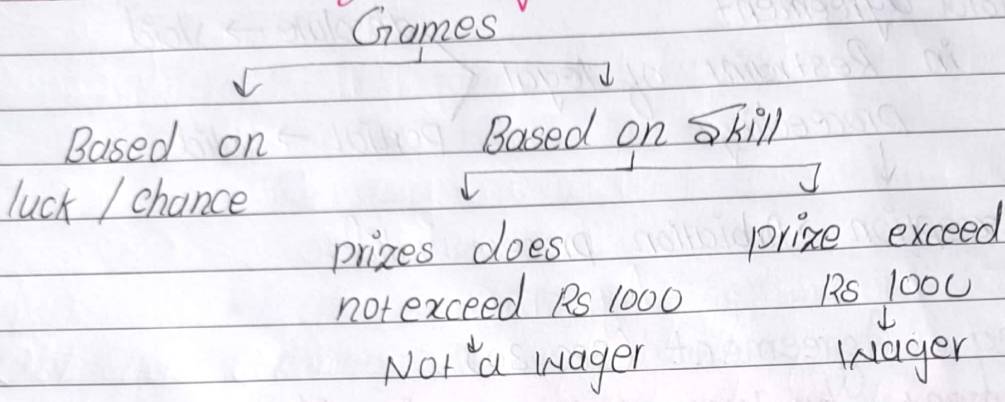 Games
Based on
luck / chance
Based on Skill
prizes does
not exceed Rs 1000
Not a wager
prize exceed
Rs 1000
Wager